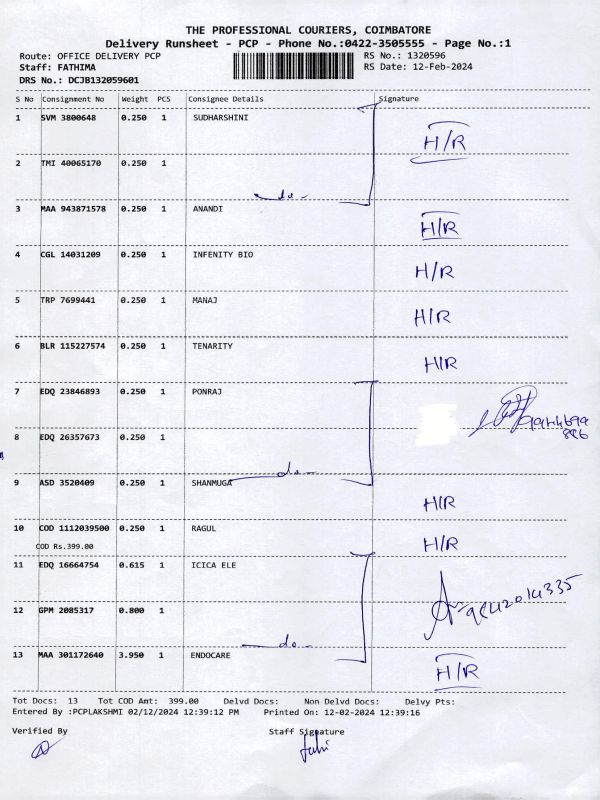 THE PROFESSIONAL COURIERS, COIMBATORE
Delivery Runsheet - PCP - Phone No.:0422-3505555 - Page No.:1
Route: OFFICE DELIVERY PCP RS No.: 1320596
Staff: FATHIMA RS Date: 12-Feb-2024
DRS No.: DCJB132059601
S No Consignment No Weight PCS Consignee Details Signature
1 SVM 3800648 0.250 1 SUDHARSHINI
H/R
2 TMI 40065170 0.250 1
do
3 MAA 943871578 0.250 1 ANANDI
H/R
4 CGL 14031209 0.250 1 INFENITY BIO
H/R
5 TRP 7699441 0.250 1 MANAJ
H/R
6 BLR 115227574 0.250 1 TENARITY
H/R
7 EDQ 23846893 0.250 1 PONRAJ
8 EDQ 26357673 0.250 1
do
9 ASD 3520409 0.250 1 SHANMUGA
H/R
10 COD 1112039500 0.250 1 RAGUL
COD Rs.399.00 H/R
11 EDQ 16664754 0.615 1 ICICA ELE
12 GPM 2085317 0.800 1
do
13 MAA 301172640 3.950 1 ENDOCARE
H/R
Tot Docs: 13 Tot COD Amt: 399.00 Delvd Docs: Non Delvd Docs: Delvy Pts:
Entered By :PCPLAKSHMI 02/12/2024 12:39:12 PM Printed On: 12-02-2024 12:39:16
Verified By Staff Signature